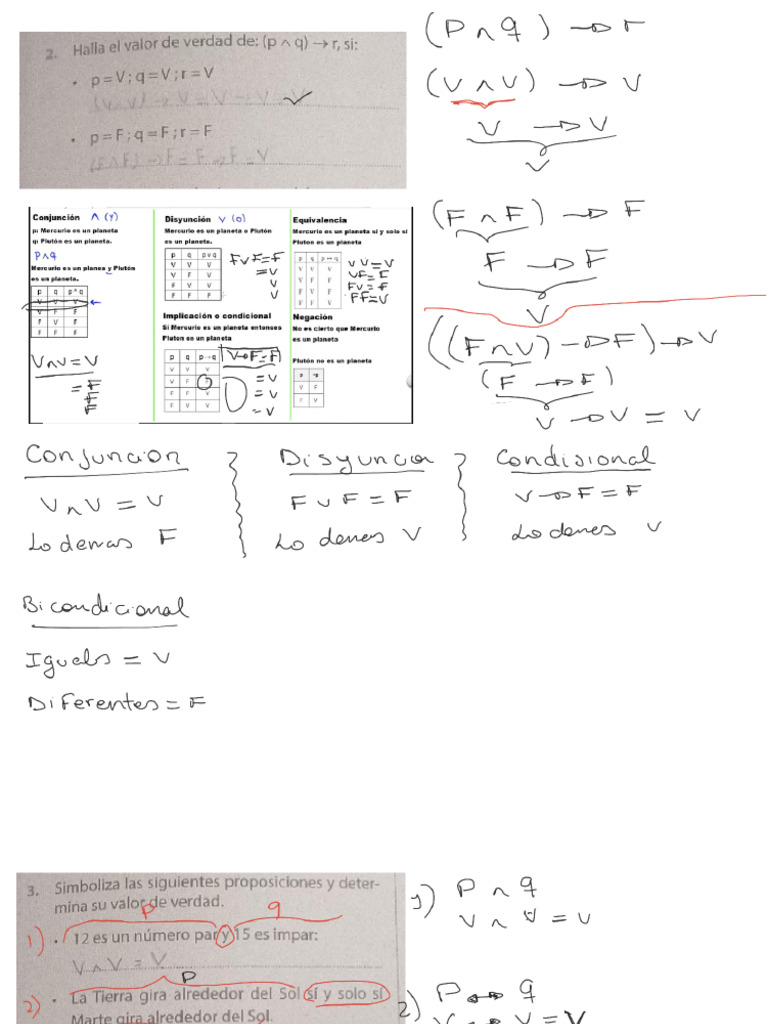 2. Halla el valor de verdad de: (p ∧ q) → r, si:
• p = V ; q = V ; r = V
(V∧V) → V = V → V = V
• p = F ; q = F ; r = F
(F∧F) → F = F → F = V
(P ∧ q) → r
(V ∧ V) → V
V → V
V
(F ∧ F) → F
F → F
V
((F ∧ V) → F) → V
(F → F)
V → V = V
Conjunción ∧ (y)
p: Mercurio es un planeta
q: Plutón es un planeta.
P∧q
Mercurio es un planea y Plutón
es un planeta.
p q p^q
V V V
V F F
F V F
F F F
V∧V = V
= F
F
F
Disyunción v (o)
Mercurio es un planeta o Plutón
es un planeta.
p q p∨q
V V V
V F V
F V V
F F F
F∨F=F
=V
V
V
Implicación o condicional
Si Mercurio es un planeta entonces
Pluton es un planeta
p q p→q
V V V
V F F
F V V
F F V
V→F=F
=V
=V
=V
Equivalencia
Mercurio es un planeta si y solo si
Pluton es un planeta
p q p↔q
V V V
V F F
F V F
F F V
VV=V
VF=F
FV=F
FF=V
Negación
No es cierto que Mercurio
es un planeta
Plutón no es un planeta
p ~p
V F
F V
Conjuncion
V∧V = V
Lo demas F
Disyuncion
F ∨ F = F
Lo demes V
Condisional
V→F = F
Lo demes V
Bicondicional
Iguals = V
Diferentes = F
3. Simboliza las siguientes proposiciones y deter-
mina su valor de verdad.
p q
1) • 12 es un número par y 15 es impar:
V∧V = V
p
2) • La Tierra gira alrededor del Sol sí y solo sí
Marte gira alrededor del Sol.
P ∧ q
V ∧ V = V
2) P ↔ q
V ↔ V = V